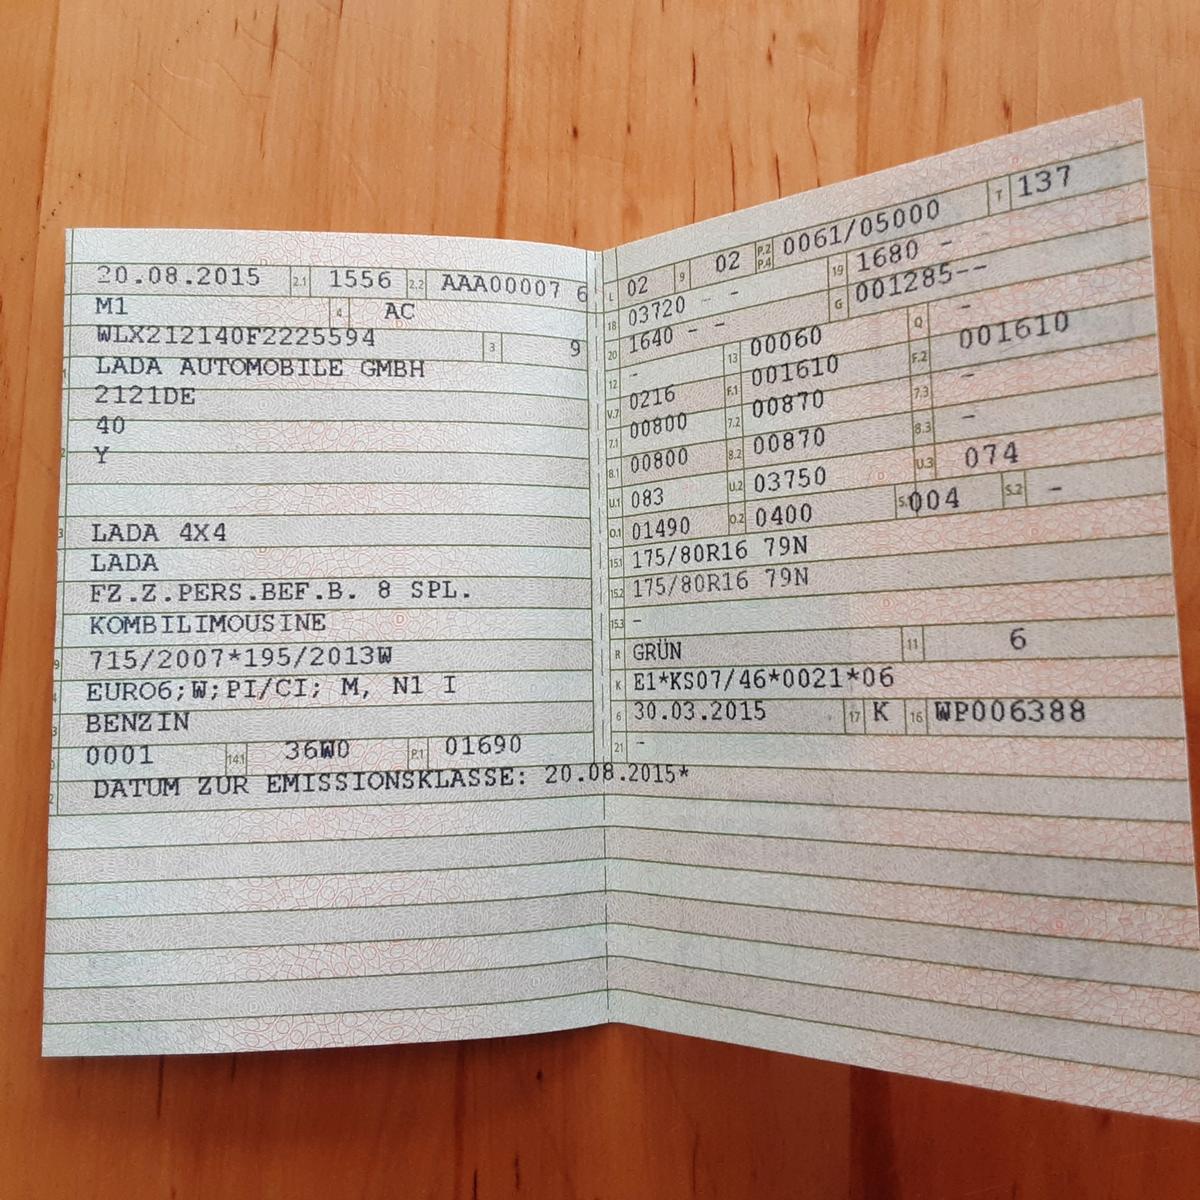 20.08.2015 2.1 1556 2.2 AAA00007 6
M1 4 AC
WLX212140F2225594 3 9
LADA AUTOMOBILE GMBH
2121DE
40
Y
LADA 4X4
LADA
FZ.Z.PERS.BEF.B. 8 SPL.
KOMBILIMOUSINE
715/2007*195/2013W
EURO6;W;PI/CI; M, N1 I
BENZIN
0001 14.1 36W0 P.1 01690
DATUM ZUR EMISSIONSKLASSE: 20.08.2015*
L 02 9 02 P.2 P.4 0061/05000 T 137
18 03720 - - 19 1680 - -
20 1640 - - G 001285--
12 - 13 00060 Q -
V.7 0216 F.1 001610 F.2 001610
7.1 00800 7.2 00870 7.3 -
8.1 00800 8.2 00870 8.3 -
U.1 083 U.2 03750 U.3 074
O.1 01490 O.2 0400 S.1 004 S.2 -
15.1 175/80R16 79N
15.2 175/80R16 79N
15.3 -
R GRÜN 11 6
K E1*KS07/46*0021*06
6 30.03.2015 17 K 16 WP006388
21 -